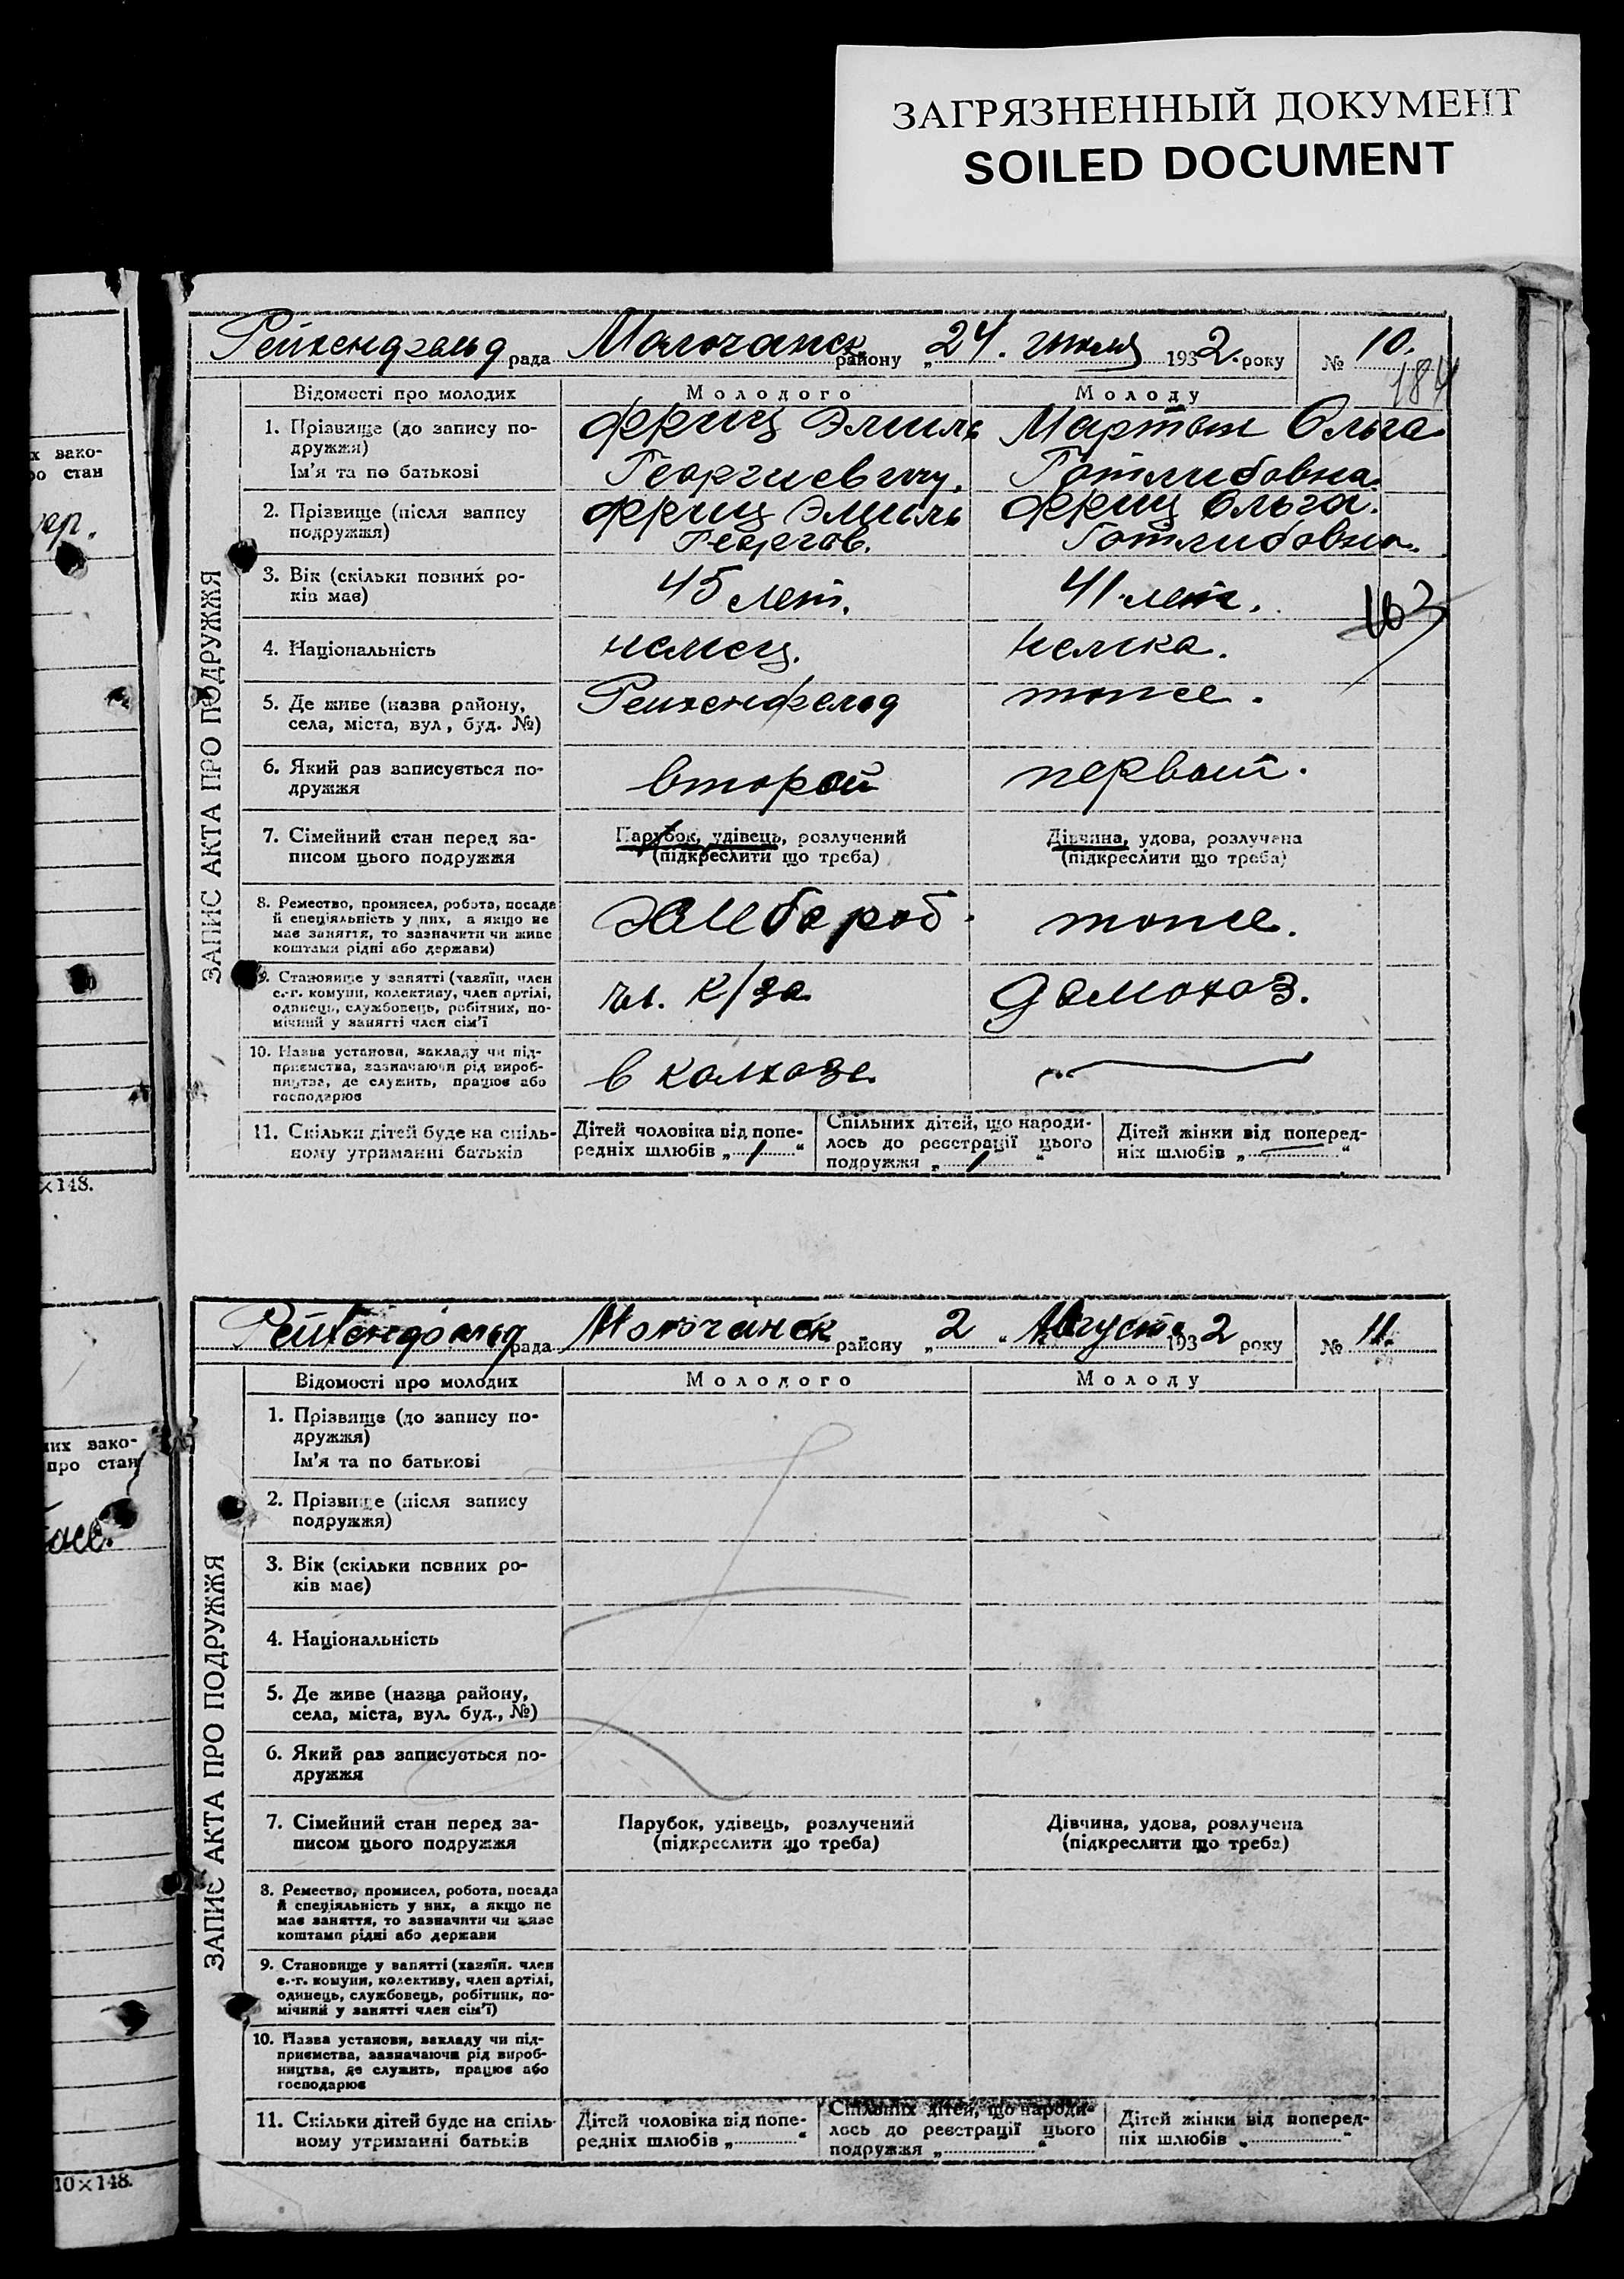 ЗАГРЯЗНЕННЫЙ ДОКУМЕНТ
SOILED DOCUMENT
х вако-
ро стан
ер.
×148.
Рейхенфельд рада Молочанск району „24. июля 1932. року № 10.
184
ЗАПИС АКТА ПРО ПОДРУЖЖЯ
Відомості про молодих Молодого Молоду
1. Прізвище (до запису по-
дружжя)
Ім'я та по батькові
Фриц Эмиль
Георгиевичу.
Ольга
Готлибовна.
2. Прізвище (після запису
подружжя)
Фриц Эмиль
Георгов.
Фриц Ольга.
Готлибовна.
3. Вік (скільки повних ро-
ків має)
45 лет.
41 лет.
103
4. Національність
немец.
немка.
5. Де живе (назва району,
села, міста, вул, буд. №)
Рейхенфельд
тоже.
6. Який раз записується по-
дружжя
второй
первый.
7. Сімейний стан перед за-
писом цього подружжя
Парубок, удівець, розлучений
(підкреслити що треба)
Дівчина, удова, розлучена
(підкреслити що треба)
8. Ремество, промисел, робота, посада
й спеціяльність у них, а якщо не
має заняття, то зазначити чи живе
коштами рідні або держави)
хлебороб.
тоже.
9. Становище у занятті (хазяїн, член
с.-г. комуни, колективу, член артілі,
одинець, службовець, робітник, по-
мічний у занятті член сім'ї
чл. к/за
домохоз.
10. Назва установи, закладу чи під-
приємства, зазначаючи рід вироб-
ництва, де служить, працює або
господарює
в колхозе
11. Скільки дітей буде на спіль-
ному утриманні батьків
Дітей чоловіка від попе-
редніх шлюбів „ 1 “
Спільних дітей, що народи-
лось до реєстрації цього
подружжя „ 1 “
Дітей жінки від поперед-
ніх шлюбів „ — “
их вако-
про стан
10×148.
Рейхенфельд рада Молочанск району „2“ Августа 1932 року № 11.
ЗАПИС АКТА ПРО ПОДРУЖЖЯ
Відомості про молодих Молодого Молоду
1. Прізвище (до запису по-
дружжя)
Ім'я та по батькові
2. Прізвище (після запису
подружжя)
3. Вік (скільки повних ро-
ків має)
4. Національність
5. Де живе (назва району,
села, міста, вул. буд., №)
6. Який раз записується по-
дружжя
7. Сімейний стан перед за-
писом цього подружжя
Парубок, удівець, розлучений
(підкреслити що треба)
Дівчина, удова, розлучена
(підкреслити що треба)
8. Ремество, промисел, робота, посада
й спеціяльність у них, а якщо не
має заняття, то зазначити чи живе
коштами рідні або держави
9. Становище у занятті (хазяїн. член
с.-г. комуни, колективу, член артілі,
одинець, службовець, робітник, по-
мічний у занятті член сім'ї)
10. Назва установи, закладу чи під-
приємства, зазначаючи рід вироб-
ництва, де служить, працює або
господарює
11. Скільки дітей буде на спіль-
ному утриманні батьків
Дітей чоловіка від попе-
редніх шлюбів „ “
Спільних дітей, що народи-
лось до реєстрації цього
подружжя „ “
Дітей жінки від поперед-
ніх шлюбів „ “